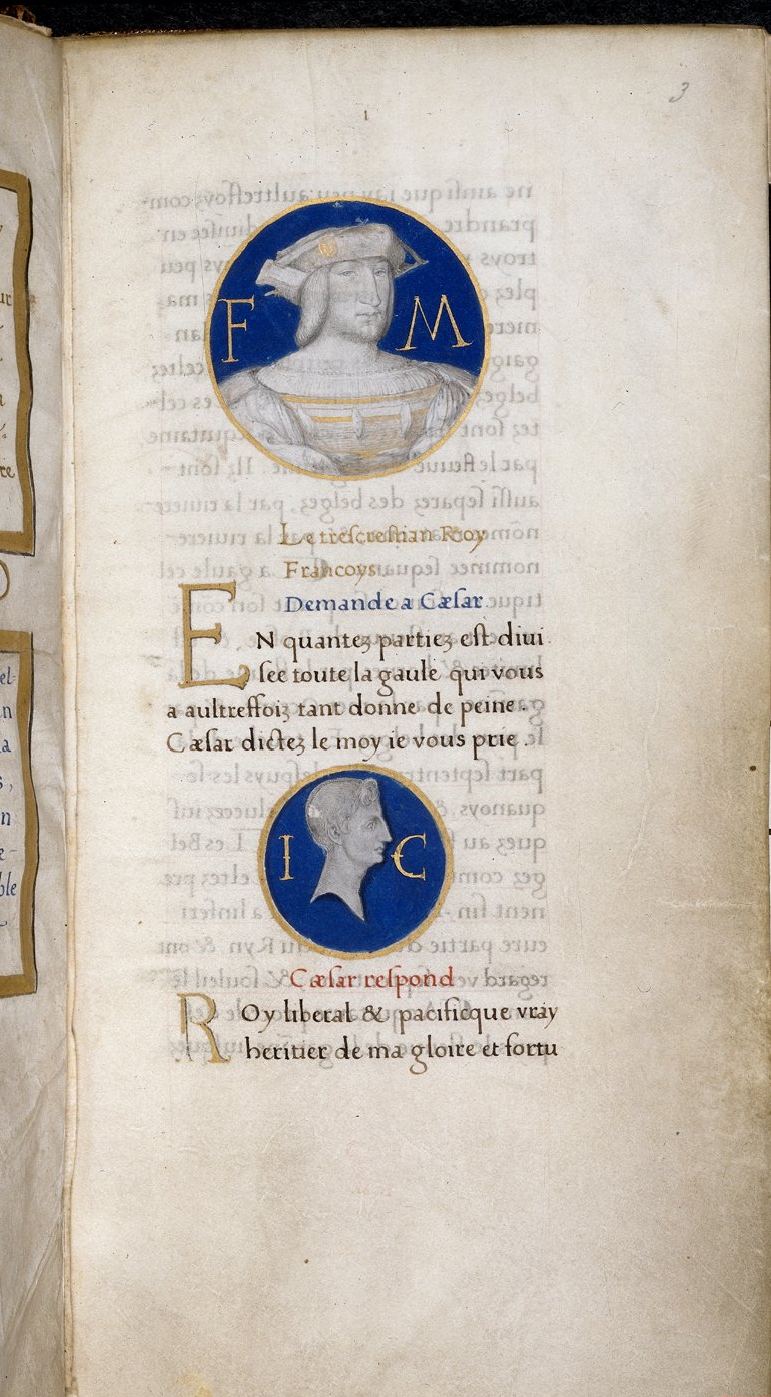 3
F M
Le trescrestian Roy
Francoys
Demande a Cæsar
EN quantez partiez est diui
see toute la gaule qui vous
a aultreffoiz tant donne de peine.
Cæsar dictez le moy ie vous prie.
I C
Cæsar respond
ROy liberal & pacificque vray
heritier de ma gloire et fortu